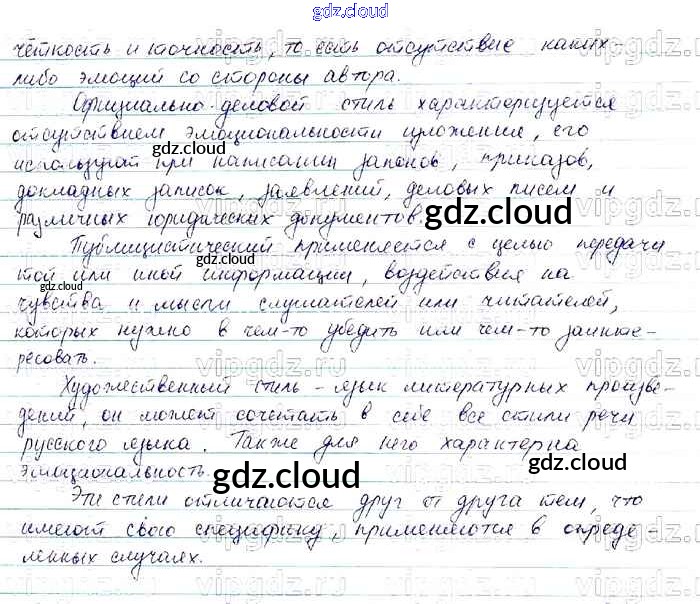 gdz.cloud
чёткость и точность, то есть отсутствие каких-
либо эмоций со стороны автора.
Официально-деловой стиль характеризуется
отсутствием эмоциональности изложения, его
используют при написании законов, приказов,
докладных записок, заявлений, деловых писем и
различных юридических документов.
Публицистический применяется с целью передачи
той или иной информации, воздействия на
чувства и мысли слушателей или читателей,
которых нужно в чем-то убедить или чем-то заинте-
ресовать.
Художественный стиль - язык литературных произве-
дений, он может сочетать в себе все стили речи
русского языка. Также для него характерна
эмоциональность.
Эти стили отличаются друг от друга тем, что
имеют свою специфику, применяются в опреде-
ленных случаях.